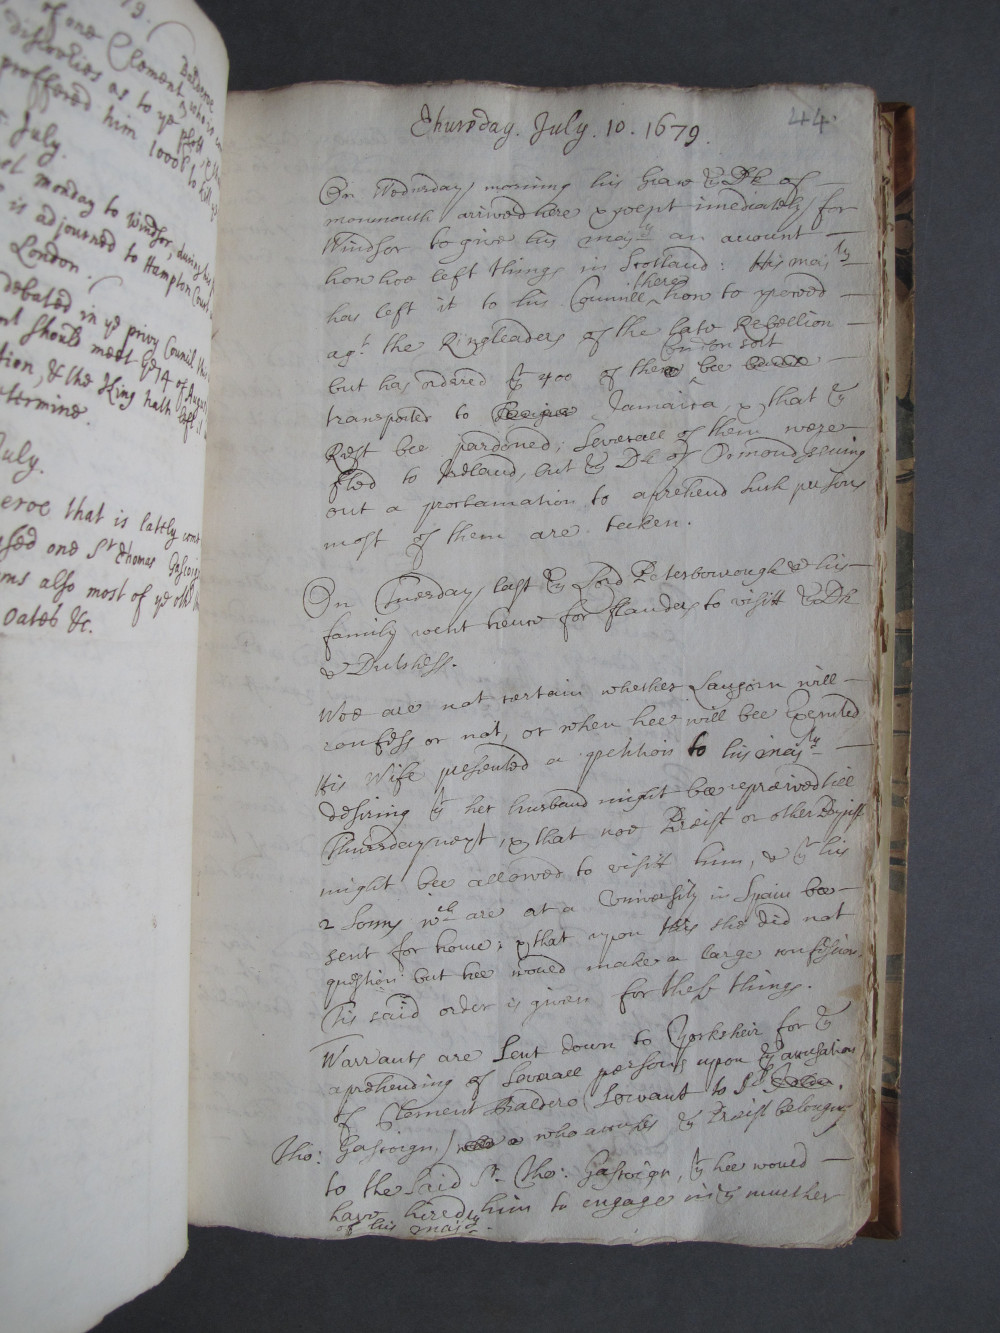 79.
of one Clement
discoveries as to ye plott
proffered him 1000l to kill
July.
monday to Windsor, during his
is adjourned to Hampton Court
London.
debated in ye privy Council that
should meet ye 14 of August
& the King hath left it
determine.
July.
that is lattly come
one Sr Thomas Gascoign
also most of ye
Oates &c.
44.
Thursday. July. 10. 1679.
On Wednsday morning his Grace ye Dk of
monmouth arived here & went imediately for
Windsor to give his maj:ty an acount
how hee left things in Scotland: His maj:ty
has left it to his Councill there how to proceed
agt the Ringleaders of the late Rebellion
but has ordered yt 400 of them bee
transported to Jamaica, & that ye
Rest bee pardoned; Severall of them were
fled to Ireland, but ye Dk of Ormond issuing
out a proclamation to aprehend such persons
most of them are taken.
On Tuesday last ye Lord Peterborrough & his
family went hence for flanders to visitt ye Dk
& Dutchess.
Wee are not certain whether Langorn will
confess or not, or when hee will bee Executed
His Wife presented a petition to his maj:ty
desiring yt her husband might bee reprieved till
Thursday next, & that noe Preist or other Papist
might bee allowed to visitt him, & yt his
2 Sonns wch are at a University in Spain bee
sent for home; & that upon this she did not
question but hee would make a large confession,
Tis said order is given for these things.
Warrants are Sent down to Yorksheir for ye
aprehending of Severall persons upon ye accusation
of Clement Baldero (Servant to Sr
Tho: Gascoign) who accuses ye Preist belonging
to the Said Sr Tho: Gascoign, yt hee would
have hired him to engage in ye murther
of his maj:ty.